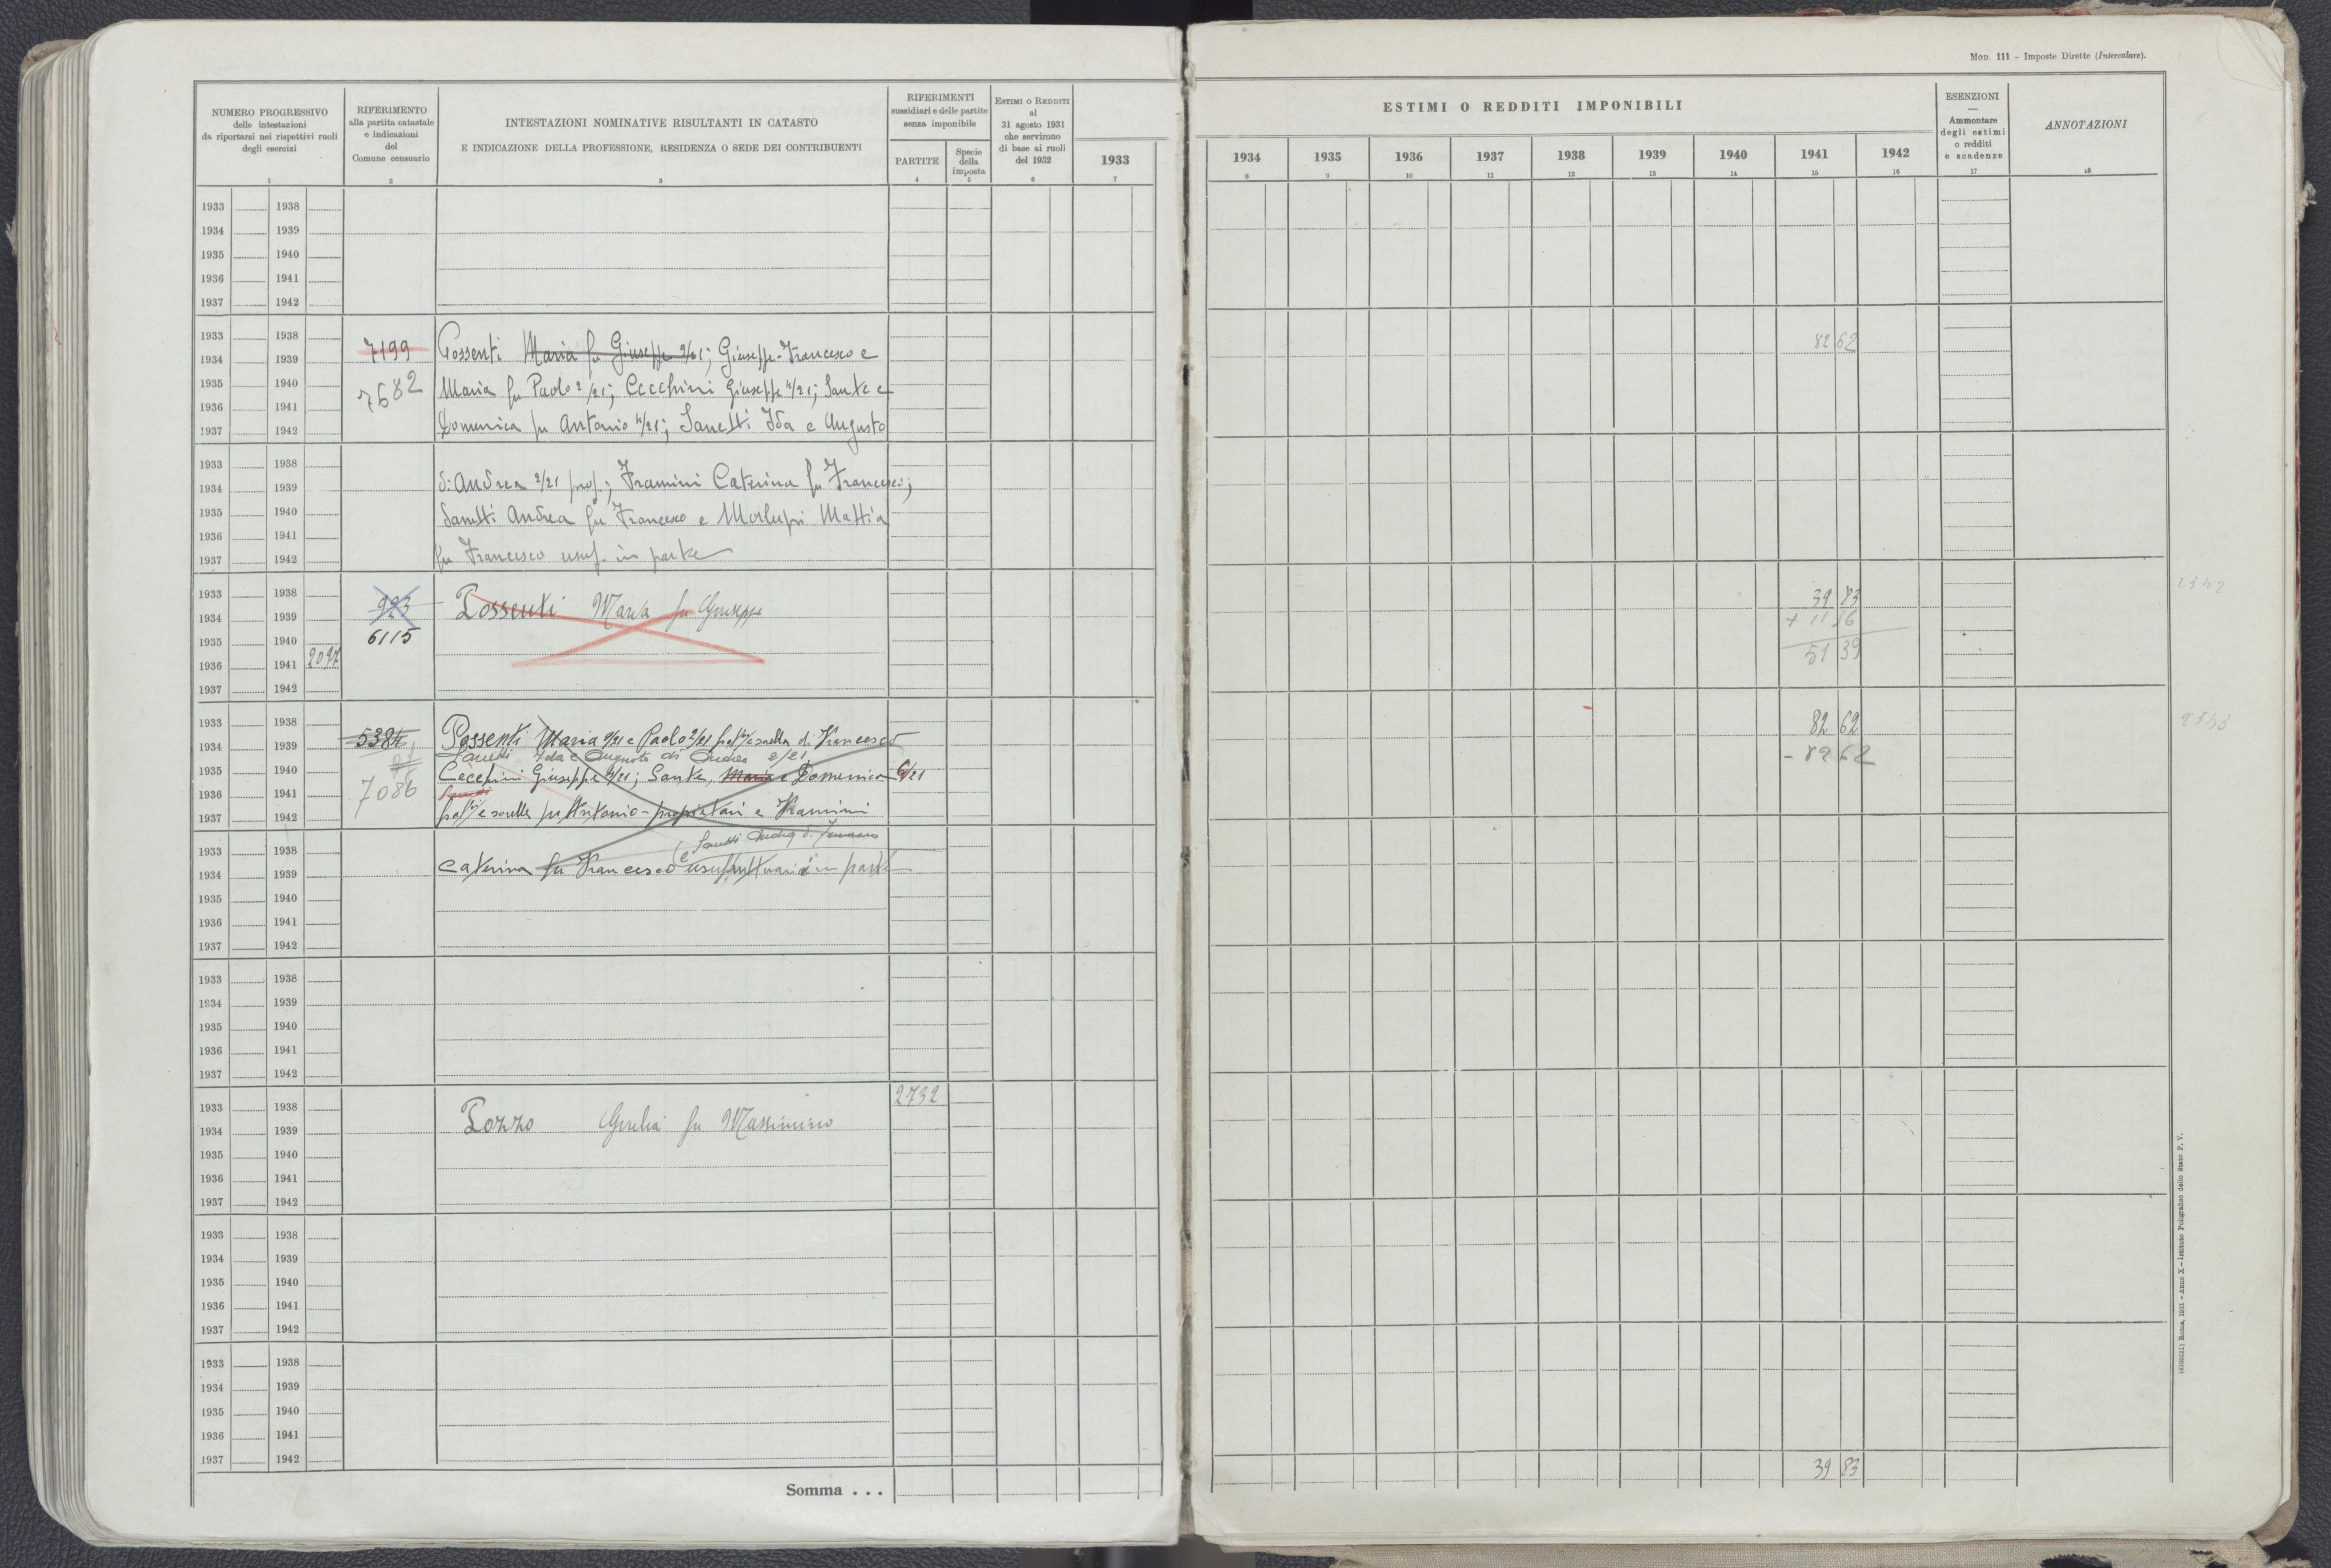 Mod. 111 - Imposte Dirette (Intercalare).
NUMERO PROGRESSIVO
delle intestazioni
da riportarsi nei rispettivi ruoli
degli esercizi
1
RIFERIMENTO
alla partita catastale
e indicazioni
del
Comune censuario
2
INTESTAZIONI NOMINATIVE RISULTANTI IN CATASTO
E INDICAZIONE DELLA PROFESSIONE, RESIDENZA O SEDE DEI CONTRIBUENTI
3
RIFERIMENTI
sussidiari e delle partite
senza imponibile
PARTITE
4
Specie
della
imposta
5
Estimi o Redditi
al
31 agosto 1931
che servirono
di base ai ruoli
del 1932
6
1933
7
ESTIMI O REDDITI IMPONIBILI
1934 1935 1936 1937 1938 1939 1940 1941 1942
8 9 10 11 12 13 14 15 16
ESENZIONI
—
Ammontare
degli estimi
o redditi
e scadenze
17
ANNOTAZIONI
18
1933 1938
1934 1939
1935 1940
1936 1941
1937 1942
1933 1938
1934 1939
1935 1940
1936 1941
1937 1942
7199
7682
Possenti Maria fu Giuseppe 9/21; Giuseppe-Francesco e
Maria fu Paolo 2/21; Cecchini Giuseppe 4/21; Sante e
Domenica fu Antonio 4/21; Sanetti Ida e Augusto
82 62
1933 1938
1934 1939
1935 1940
1936 1941
1937 1942
di Andrea 2/21 prop.; Framini Caterina fu Francesco;
Sanetti Andrea fu Francesco e Morlupi Mattia
fu Francesco usuf. in parte
1933 1938
1934 1939
1935 1940
1936 1941 2097
1937 1942
923
6115
Possenti Maria fu Giuseppe
39 83
+ 11 56
51 39
2342
1933 1938
1934 1939
1935 1940
1936 1941
1937 1942
5384
7086
Possenti Maria 9/21 e Paolo 2/21 fratello e sorella di Francesco
Sanetti Ida e Augusto di Andrea 2/21
Cecchini Giuseppe 4/21; Sante, Maria e Domenica 6/21
frat.lli e sorelle fu Antonio - proprietari e Framini
82 62
- 82 62
2343
1933 1938
1934 1939
1935 1940
1936 1941
1937 1942
e Sanetti Andrea di Francesco
Caterina fu Francesco usufruttuari in parte
1933 1938
1934 1939
1935 1940
1936 1941
1937 1942
1933 1938
1934 1939
1935 1940
1936 1941
1937 1942
2732
Pozzo Giulia fu Massimino
1933 1938
1934 1939
1935 1940
1936 1941
1937 1942
1933 1938
1934 1939
1935 1940
1936 1941
1937 1942
Somma . . .
39 83
(4103551) Roma, 1931 - Anno X - Istituto Poligrafico dello Stato P. V.